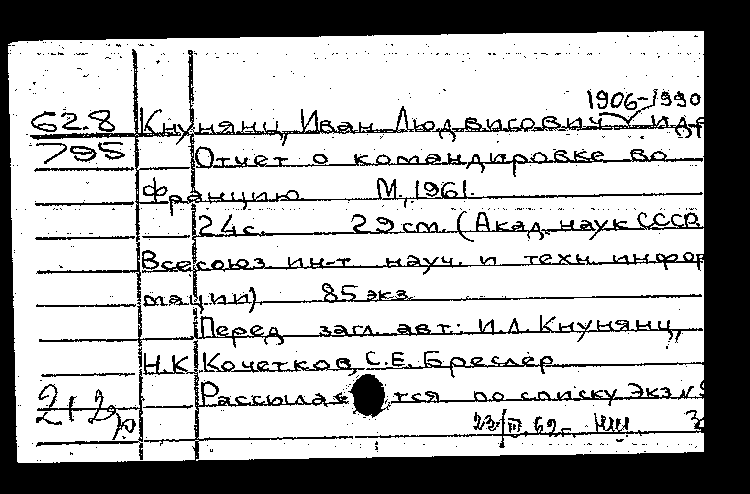 1906-1990
62.8 Кнунянц, Иван Людвигович и др
795 Отчет о командировке во
Францию М., 1961.
24 с. 29 см. (Акад. наук СССР.
Всесоюз. ин-т науч. и техн. инфор
мации) 85 экз.
Перед загл. авт.: И.Л. Кнунянц,
Н.К. Кочетков, С.Е. Бреслер
Рассылается по списку Экз №
2+2
23/III.62г.